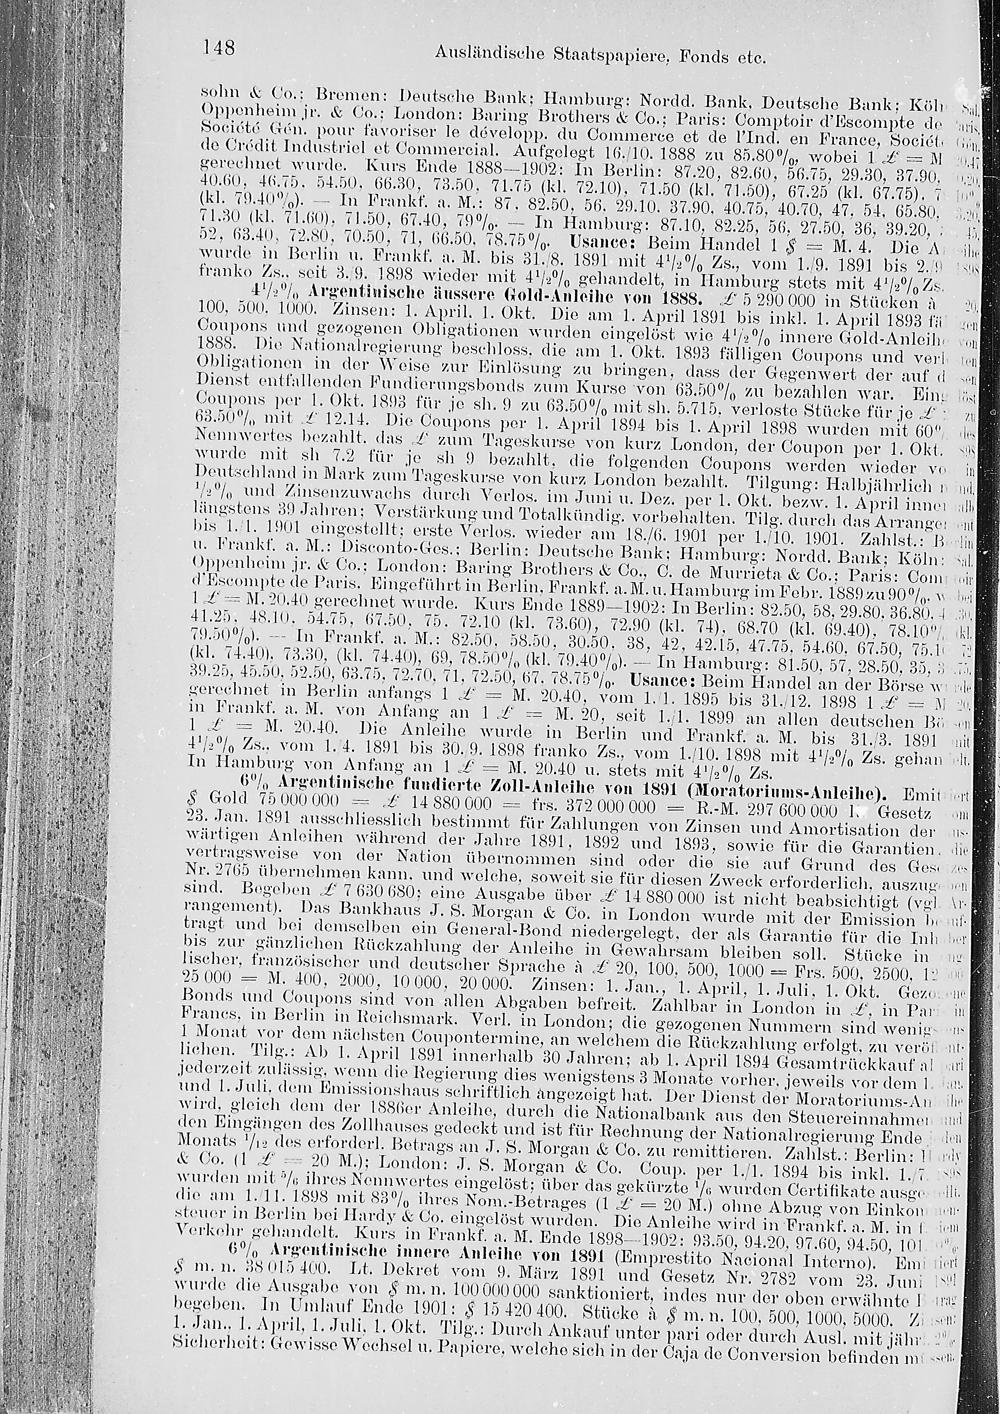 148
Ausländische Staatspapiere, Fonds etc.
sohn & Co.; Bremen: Deutsche Bank; Hamburg: Nordd. Bank, Deutsche Bank; Köln
Oppenheim jr. & Co.; London: Baring Brothers & Co.; Paris: Comptoir d'Escompte de
Société Gén. pour favoriser le développ. du Commerce et de l'Ind. en France, Sociét
de Crédit Industriel et Commercial. Aufgelegt 16./10. 1888 zu 85.80%, wobei 1 £ = M
gerechnet wurde. Kurs Ende 1888—1902: In Berlin: 87.20, 82.60, 56.75, 29.30, 37.90,
40.60, 46.75, 54.50, 66.30, 73.50, 71.75 (kl. 72.10), 71.50 (kl. 71.50), 67.25 (kl. 67.75), 7
(kl. 79.40%). — In Frankf. a. M.: 87, 82.50, 56, 29.10, 37.90, 40.75, 40.70, 47, 54, 65.80,
71.30 (kl. 71.60), 71.50, 67.40, 79%. — In Hamburg: 87.10, 82.25, 56, 27.50, 36, 39.20,
52, 63.40, 72.80, 70.50, 71, 66.50, 78.75%. Usance: Beim Handel 1 $ = M. 4. Die A
wurde in Berlin u. Frankf. a. M. bis 31./8. 1891 mit 4½% Zs., vom 1./9. 1891 bis 2./9
franko Zs., seit 3./9. 1898 wieder mit 4½% gehandelt, in Hamburg stets mit 4½% Zs.
4½% Argentinische äussere Gold-Anleihe von 1888. £ 5 290 000 in Stücken à
100, 500, 1000. Zinsen: 1. April, 1. Okt. Die am 1. April 1891 bis inkl. 1. April 1893 fä
Coupons und gezogenen Obligationen wurden eingelöst wie 4½% innere Gold-Anleihe
1888. Die Nationalregierung beschloss, die am 1. Okt. 1893 fälligen Coupons und verl
Obligationen in der Weise zur Einlösung zu bringen, dass der Gegenwert der auf d
Dienst entfallenden Fundierungsbonds zum Kurse von 63.50% zu bezahlen war. Eing
Coupons per 1. Okt. 1893 für je sh. 9 zu 63.50% mit sh. 5.715, verloste Stücke für je £
63.50% mit £ 12.14. Die Coupons per 1. April 1894 bis 1. April 1898 wurden mit 60%
Nennwertes bezahlt, das £ zum Tageskurse von kurz London, der Coupon per 1. Okt.
wurde mit sh 7.2 für je sh 9 bezahlt, die folgenden Coupons werden wieder vo
Deutschland in Mark zum Tageskurse von kurz London bezahlt. Tilgung: Halbjährlich
½% und Zinsenzuwachs durch Verlos. im Juni u. Dez. per 1. Okt. bezw. 1. April inner
längstens 39 Jahren; Verstärkung und Totalkündig. vorbehalten. Tilg. durch das Arrange
bis 1./1. 1901 eingestellt; erste Verlos. wieder am 18./6. 1901 per 1./10. 1901. Zahlst.: B
u. Frankf. a. M.: Disconto-Ges.; Berlin: Deutsche Bank; Hamburg: Nordd. Bank; Köln:
Oppenheim jr. & Co.; London: Baring Brothers & Co., C. de Murrieta & Co.; Paris: Com
d'Escompte de Paris. Eingeführt in Berlin, Frankf. a. M. u. Hamburg im Febr. 1889 zu 90%, w
1 £ = M. 20.40 gerechnet wurde. Kurs Ende 1889—1902: In Berlin: 82.50, 58, 29.80, 36.80,
41.25, 48.10, 54.75, 67.50, 75, 72.10 (kl. 73.60), 72.90 (kl. 74), 68.70 (kl. 69.40), 78.10%
79.50%). — In Frankf. a. M.: 82.50, 58.50, 30.50, 38, 42, 42.15, 47.75, 54.60, 67.50, 75.1
(kl. 74.40), 73.30, (kl. 74.40), 69, 78.50% (kl. 79.40%). — In Hamburg: 81.50, 57, 28.50, 35,
39.25, 45.50, 52.50, 63.75, 72.70, 71, 72.50, 67, 78.75%. Usance: Beim Handel an der Börse w
gerechnet in Berlin anfangs 1 £ = M. 20.40, vom 1./1. 1895 bis 31./12. 1898 1 £ = M
in Frankf. a. M. von Anfang an 1 £ = M. 20, seit 1./1. 1899 an allen deutschen Bö
1 £ = M. 20.40. Die Anleihe wurde in Berlin und Frankf. a. M. bis 31./3. 1891
4½% Zs., vom 1./4. 1891 bis 30./9. 1898 franko Zs., vom 1./10. 1898 mit 4½% Zs. gehan
In Hamburg von Anfang an 1 £ = M. 20.40 u. stets mit 4½% Zs.
6% Argentinische fundierte Zoll-Anleihe von 1891 (Moratoriums-Anleihe). Emit
$ Gold 75 000 000 = £ 14 880 000 = frs. 372 000 000 = R.-M. 297 600 000 l. Gesetz
23. Jan. 1891 ausschliesslich bestimmt für Zahlungen von Zinsen und Amortisation der
wärtigen Anleihen während der Jahre 1891, 1892 und 1893, sowie für die Garantien,
vertragsweise von der Nation übernommen sind oder die sie auf Grund des Ges
Nr. 2765 übernehmen kann, und welche, soweit sie für diesen Zweck erforderlich, auszug
sind. Begeben £ 7 630 680; eine Ausgabe über £ 14 880 000 ist nicht beabsichtigt (vgl.
rangement). Das Bankhaus J. S. Morgan & Co. in London wurde mit der Emission b
tragt und bei demselben ein General-Bond niedergelegt, der als Garantie für die Inh
bis zur gänzlichen Rückzahlung der Anleihe in Gewahrsam bleiben soll. Stücke in
lischer, französischer und deutscher Sprache à £ 20, 100, 500, 1000 = Frs. 500, 2500, 12
25 000 = M. 400, 2000, 10 000, 20 000. Zinsen: 1. Jan., 1. April, 1. Juli, 1. Okt. Gezo
Bonds und Coupons sind von allen Abgaben befreit. Zahlbar in London in £, in Par
Francs, in Berlin in Reichsmark. Verl. in London; die gezogenen Nummern sind wenig
1 Monat vor dem nächsten Coupontermine, an welchem die Rückzahlung erfolgt, zu veröf
lichen. Tilg.: Ab 1. April 1891 innerhalb 30 Jahren; ab 1. April 1894 Gesamtrückkauf al
jederzeit zulässig, wenn die Regierung dies wenigstens 3 Monate vorher, jeweils vor dem 1.
und 1. Juli, dem Emissionshaus schriftlich angezeigt hat. Der Dienst der Moratoriums-An
wird, gleich dem der 1886er Anleihe, durch die Nationalbank aus den Steuereinnahmen
den Eingängen des Zollhauses gedeckt und ist für Rechnung der Nationalregierung Ende
Monats 1/12 des erforderl. Betrags an J. S. Morgan & Co. zu remittieren. Zahlst.: Berlin: H
& Co. (1 £ = 20 M.); London: J. S. Morgan & Co. Coup. per 1./1. 1894 bis inkl. 1./7.
wurden mit 5/6 ihres Nennwertes eingelöst; über das gekürzte 1/6 wurden Certifikate ausge
die am 1./11. 1898 mit 83% ihres Nom.-Betrages (1 £ = 20 M.) ohne Abzug von Einkom
steuer in Berlin bei Hardy & Co. eingelöst wurden. Die Anleihe wird in Frankf. a. M. in f
Verkehr gehandelt. Kurs in Frankf. a. M. Ende 1898—1902: 93.50, 94.20, 97.60, 94.50, 101
6% Argentinische innere Anleihe von 1891 (Emprestito Nacional Interno). Emi
$ m. n. 38 015 400. Lt. Dekret vom 9. März 1891 und Gesetz Nr. 2782 vom 23. Juni
wurde die Ausgabe von $ m. n. 100 000 000 sanktioniert, indes nur der oben erwähnte
begeben. In Umlauf Ende 1901: $ 15 420 400. Stücke à $ m. n. 100, 500, 1000, 5000. Z
1. Jan., 1. April, 1. Juli, 1. Okt. Tilg.: Durch Ankauf unter pari oder durch Ausl. mit jähr
Sicherheit: Gewisse Wechsel u. Papiere, welche sich in der Caja de Conversion befinden m